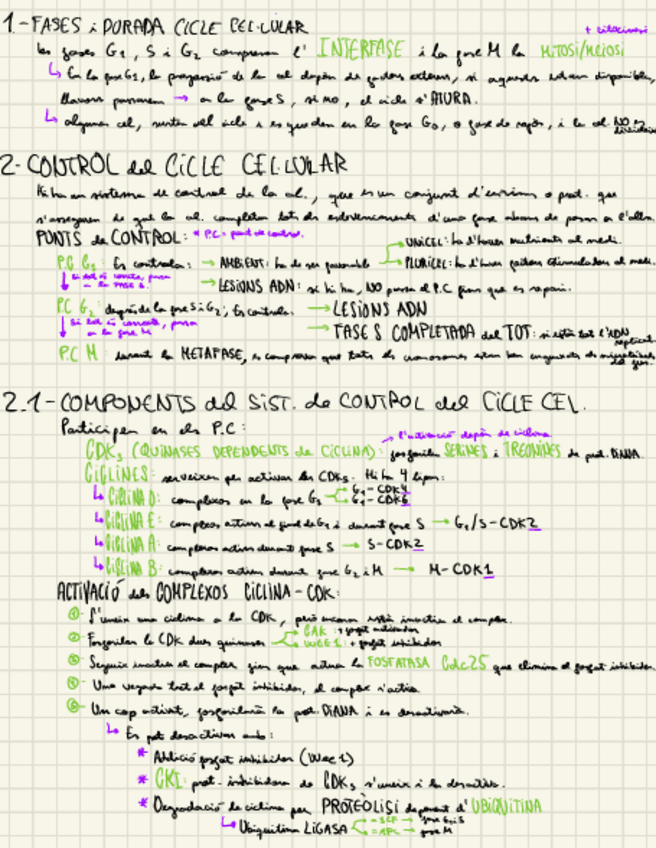 1.- FASES i PORADA CICLE CEL·LULAR
+ citocinesi
les fases G1, S i G2 comprenen l' INTERFASE i la fase M la MITOSI/MEIOSI
↳ En la fase G1, la progressió de la cel depèn de factors externs, si aquests estan disponibles,
llavors passarem → a la fase S, si no, el cicle s'ATURA.
↳ algunes cel, surten del cicle i es queden en la fase G0, o fase de repòs, i la cel. NO es dividirà
2- CONTROL del CICLE CEL·LULAR
Hi ha un sistema de control de la cel., que és un conjunt d'enzims o prot. que
s'asseguren de que la cel. completa tots els esdeveniments d'una fase abans de passar a l'altra.
PUNTS de CONTROL: * P.C = punt de control.
UNICEL: ha d'haver nutrients al medi.
P.C G1: Es controla: → AMBIENT: ha de ser favorable
PLURICEL: ha d'haver factors estimuladors al medi.
↓ si tot és correcte, passa a la FASE S.
→ LESIONS ADN: si hi ha, NO passa el P.C fins que es repari.
P.C G2: després de la fase S i G2, Es controla: → LESIONS ADN
↓ Si tot és correcte, passa a la fase M
→ FASE S COMPLETADA del TOT: si està tot l'ADN replicat.
P.C M: durant la METAFASE, es comprova que tots els cromosomes estan ben enganxats als microtúbuls del fus.
2.1- COMPONENTS del SIST. de CONTROL del CICLE CEL.
Participen en els P.C:
→ l'activació depèn de ciclina
CDKs (QUINASES DEPENDENTS de CICLINA): fosforilen SERINES i TREONINES de prot. DIANA.
CICLINES: serveixen per activar les CDKs. Hi ha 4 tipus:
↳ CICLINA D: complexos en la fase G1
G1 - CDK4
G1 - CDK6
↳ CICLINA E: complexos actius al final de G1 i durant fase S → G1/S-CDK2
↳ CICLINA A: complexos actius durant fase S → S-CDK2
↳ CICLINA B: complexos actius durant fase G2 i M → M-CDK1
ACTIVACIÓ dels COMPLEXOS CICLINA-CDK:
① S'uneix una ciclina a la CDK, però encara està inactiu el complex.
② Fosforilen la CDK dues quinases
→ CAK: + fosfat activador
→ WEE1: + fosfat inhibidor
③ Segueix inactiu el complex fins que actua la FOSFATASA Cdc25 que elimina el fosfat inhibidor.
④ Una vegada tret el fosfat inhibidor, el complex s'activa
⑤ Un cop activat, fosforilarà la prot. DIANA i es desactivarà.
↳ Es pot desactivar amb:
* Addició fosfat inhibidor (Wee1)
* CKI: prot. inhibidora de CDKs s'uneix i la desactiva.
* Degradació la ciclina per PROTEÒLISI depenent d'UBIQUITINA
↳ Ubiquitina LIGASA
- SCF → fase G1 i S
- APC → fase M